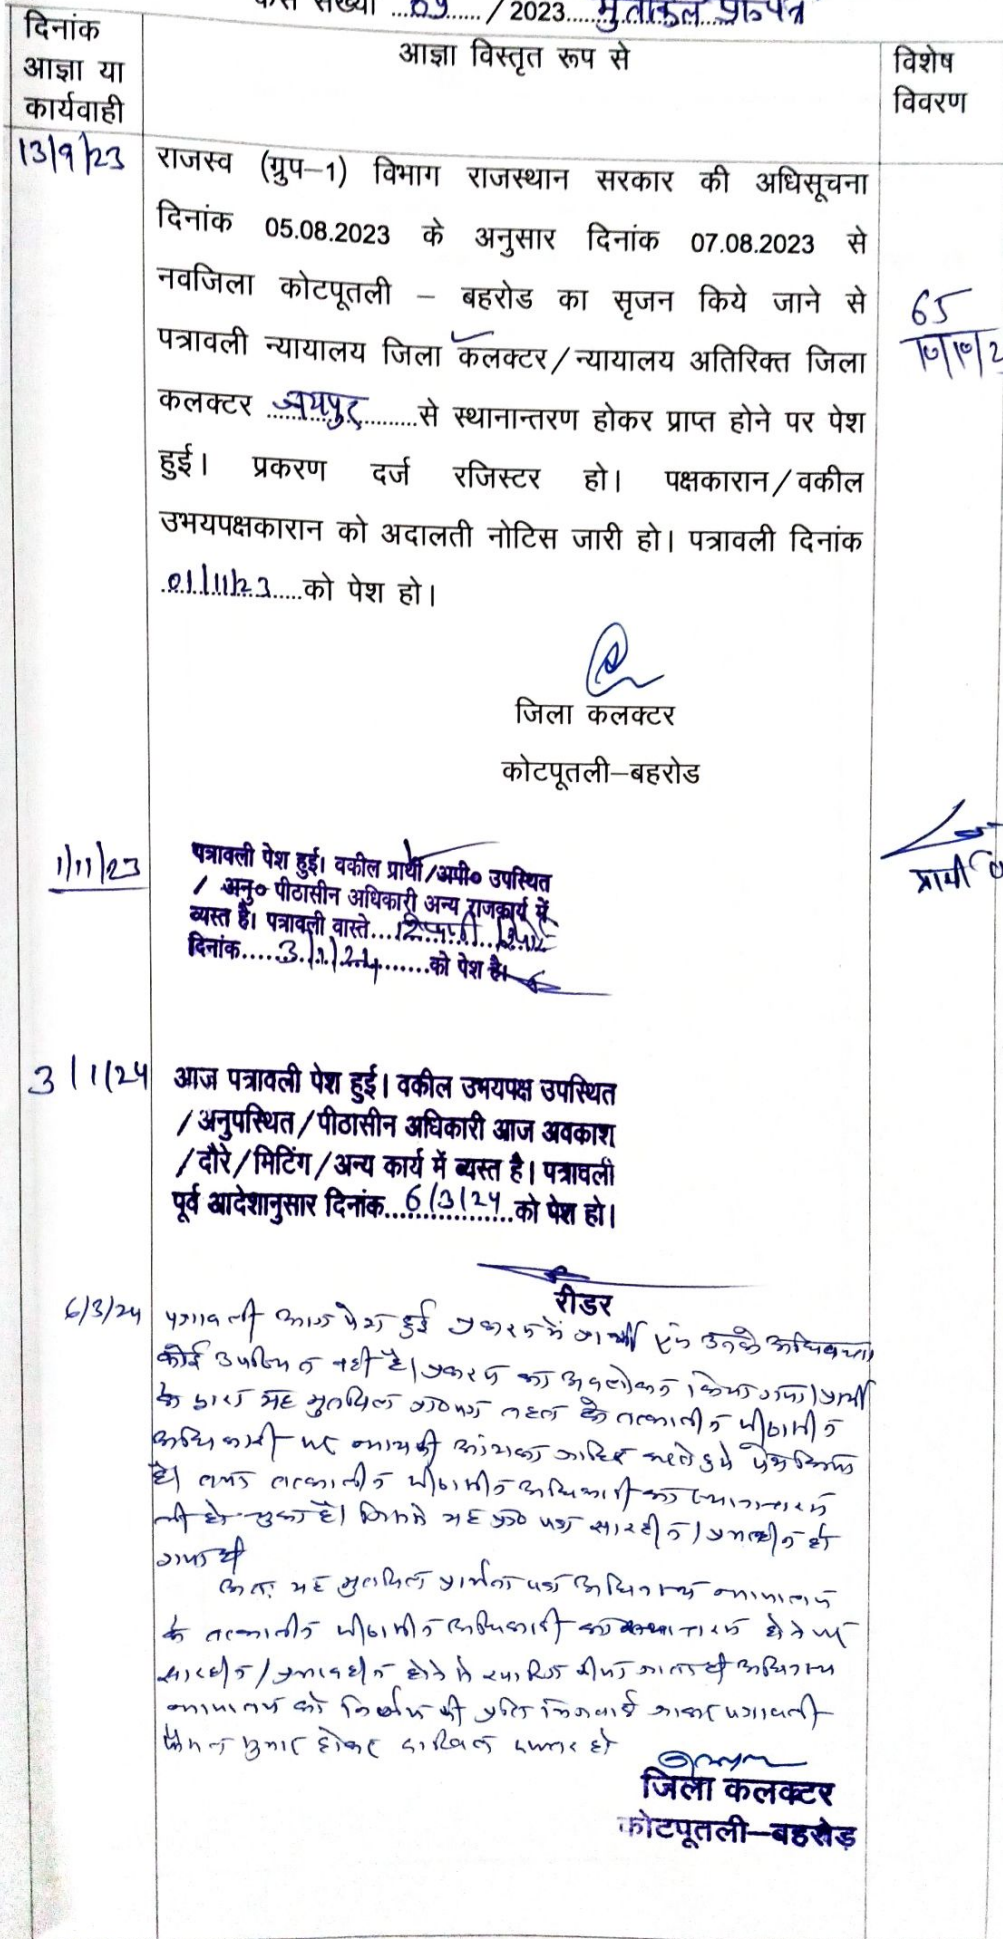 / 2023
दिनांक
आज्ञा या
कार्यवाही
आज्ञा विस्तृत रूप से
विशेष
विवरण
13/9/23
राजस्व (ग्रुप–1) विभाग राजस्थान सरकार की अधिसूचना
दिनांक 05.08.2023 के अनुसार दिनांक 07.08.2023 से
नवजिला कोटपूतली – बहरोड का सृजन किये जाने से
पत्रावली न्यायालय जिला कलक्टर/न्यायालय अतिरिक्त जिला
कलक्टर जयपुर से स्थानान्तरण होकर प्राप्त होने पर पेश
हुई। प्रकरण दर्ज रजिस्टर हो। पक्षकारान/वकील
उभयपक्षकारान को अदालती नोटिस जारी हो। पत्रावली दिनांक
01/11/23 को पेश हो।
65
जिला कलक्टर
कोटपूतली–बहरोड
1/11/23
पत्रावली पेश हुई। वकील प्रार्थी/अपी० उपस्थित
/ अनु० पीठासीन अधिकारी अन्य राजकार्य में
व्यस्त है। पत्रावली वास्ते
दिनांक....3/1/24.......को पेश है।
प्रार्थी
3/1/24
आज पत्रावली पेश हुई। वकील उभयपक्ष उपस्थित
/अनुपस्थित/पीठासीन अधिकारी आज अवकाश
/दौरे/मिटिंग/अन्य कार्य में व्यस्त है। पत्रावली
पूर्व आदेशानुसार दिनांक...6/3/24...को पेश हो।
रीडर
6/3/24
पत्रावली आज पेश हुई प्रकरण में प्रार्थी एवं उनके अधिवक्ता
कोई उपस्थित नहीं है। प्रकरण का अवलोकन किया गया। प्रार्थी
के द्वारा यह के तत्कालीन पीठासीन
अधिकारी पर करते हुये पेश किया
है। तत्कालीन पीठासीन अधिकारी का स्थानान्तरण
भी हो चुका है। जिससे यह सारहीन हो
गया है
अतः यह प्रार्थना पत्र न्यायालय
के तत्कालीन पीठासीन अधिकारी का स्थानान्तरण होने पर
सारहीन होने से खारिज किया जाता है
न्यायालय को निर्णय की प्रति भिजवाई जाकर पत्रावली
फैसल शुमार होकर दाखिल दफ्तर हो
जिला कलक्टर
कोटपूतली–बहरोड़